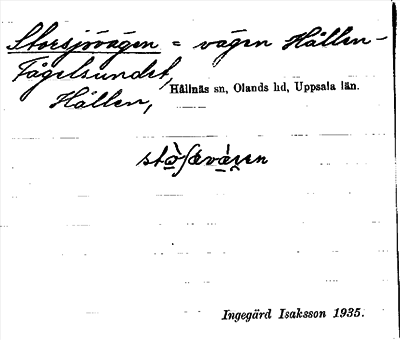 Storsjövägen = vägen Hållen-
Fågelsundet,
Hållnäs sn, Olands hd, Uppsala län.
Hållen,
Ingegärd Isaksson 1935.